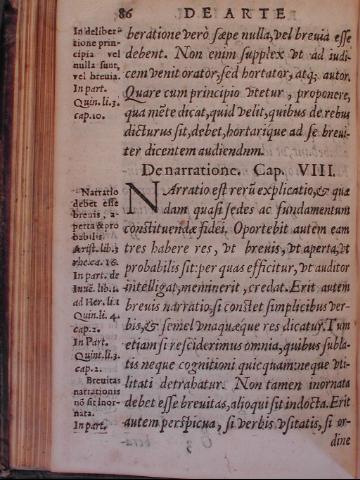 86 DE ARTE
In deliber=
tione prin-
cipia vel
nulla sunt,
vel breuia.
In part.
Quin. li. 3.
cap. 10.
beratione verò sæpe nulla, vel breuia esse
debent. Non enim supplex vt ad iudi-
cem venit orator, sed hortator, atq; autor.
Quare cum principio vtetur, proponere,
qua mẽte dicat, quid velit, quibus de rebus
dicturus sit, debet, hortarique ad se breui-
ter dicentem audiendnm.
De narratione. Cap. VIII.
Narratio
debet esse
breuis, a-
perta & pro
babilis.
Arist. lib. 3
rhe. ca. 16.
In part. de
Inuẽ. lib. 1.
ad Her. li. 1
Quin. li. 4.
cap. 2.
In Part.
Quint. li. 3.
cap. 2.
Breuitas
narrationis
nõ sit inor-
nata.
In part.
NArratio est rerũ explicatio, & quæ
dam quasi sedes ac fundamentum
constituendæ fidei. Oportebit autem eam
tres habere res, vt breuis, vt aperta, vt
probabilis sit: per quas efficitur, vt auditor
intelligat, meminerit, credat. Erit autem
breuis narratio, si constet simplicibus ver-
bis, & semel vnaquæque res dicatur. Tum
etiam si resciderimus omnia, quibus subla-
tis neque cognitioni quicquam, neque vti-
litati detrahatur. Non tamen inornata
debet esse breuitas, alioqui sit indocta. Erit
autem perspicua, si verbis vsitatis, si or-
dine